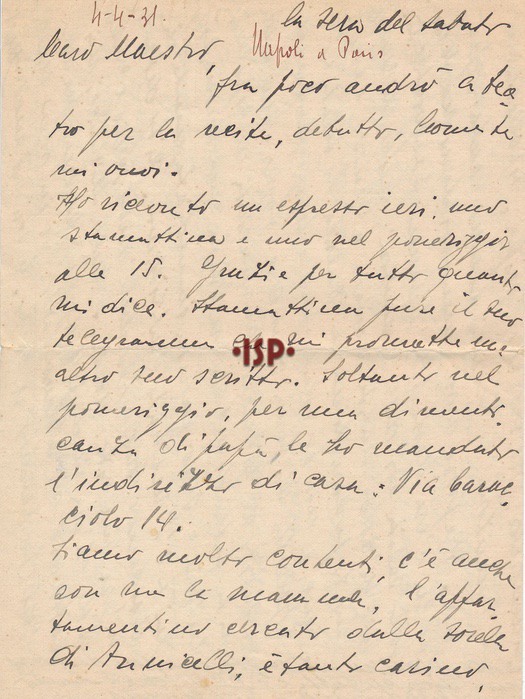 4-4-31. la sera del sabato
Caro Maestro, Napoli a Paris
fra poco andrò a tea
tro per la recita, debutto, Come te
mi vuoi.
Ho ricevuto un espresso ieri, uno
stamattina e uno nel pomeriggio
alle 15. Grazie per tutto quanto
mi dice. Stamattina pure il suo
telegramma che mi promette un
altro suo scritto. Soltanto nel
pomeriggio, per una dimenti
canza di papà, le ho mandato
l'indirizzo di casa: Via Carac
ciolo 14.
Siamo molto contenti, c'è anche
con me la mamma, l'appar
tamentino cercato dalla sorella
di Annicelli, è tanto carino,
•ISP•